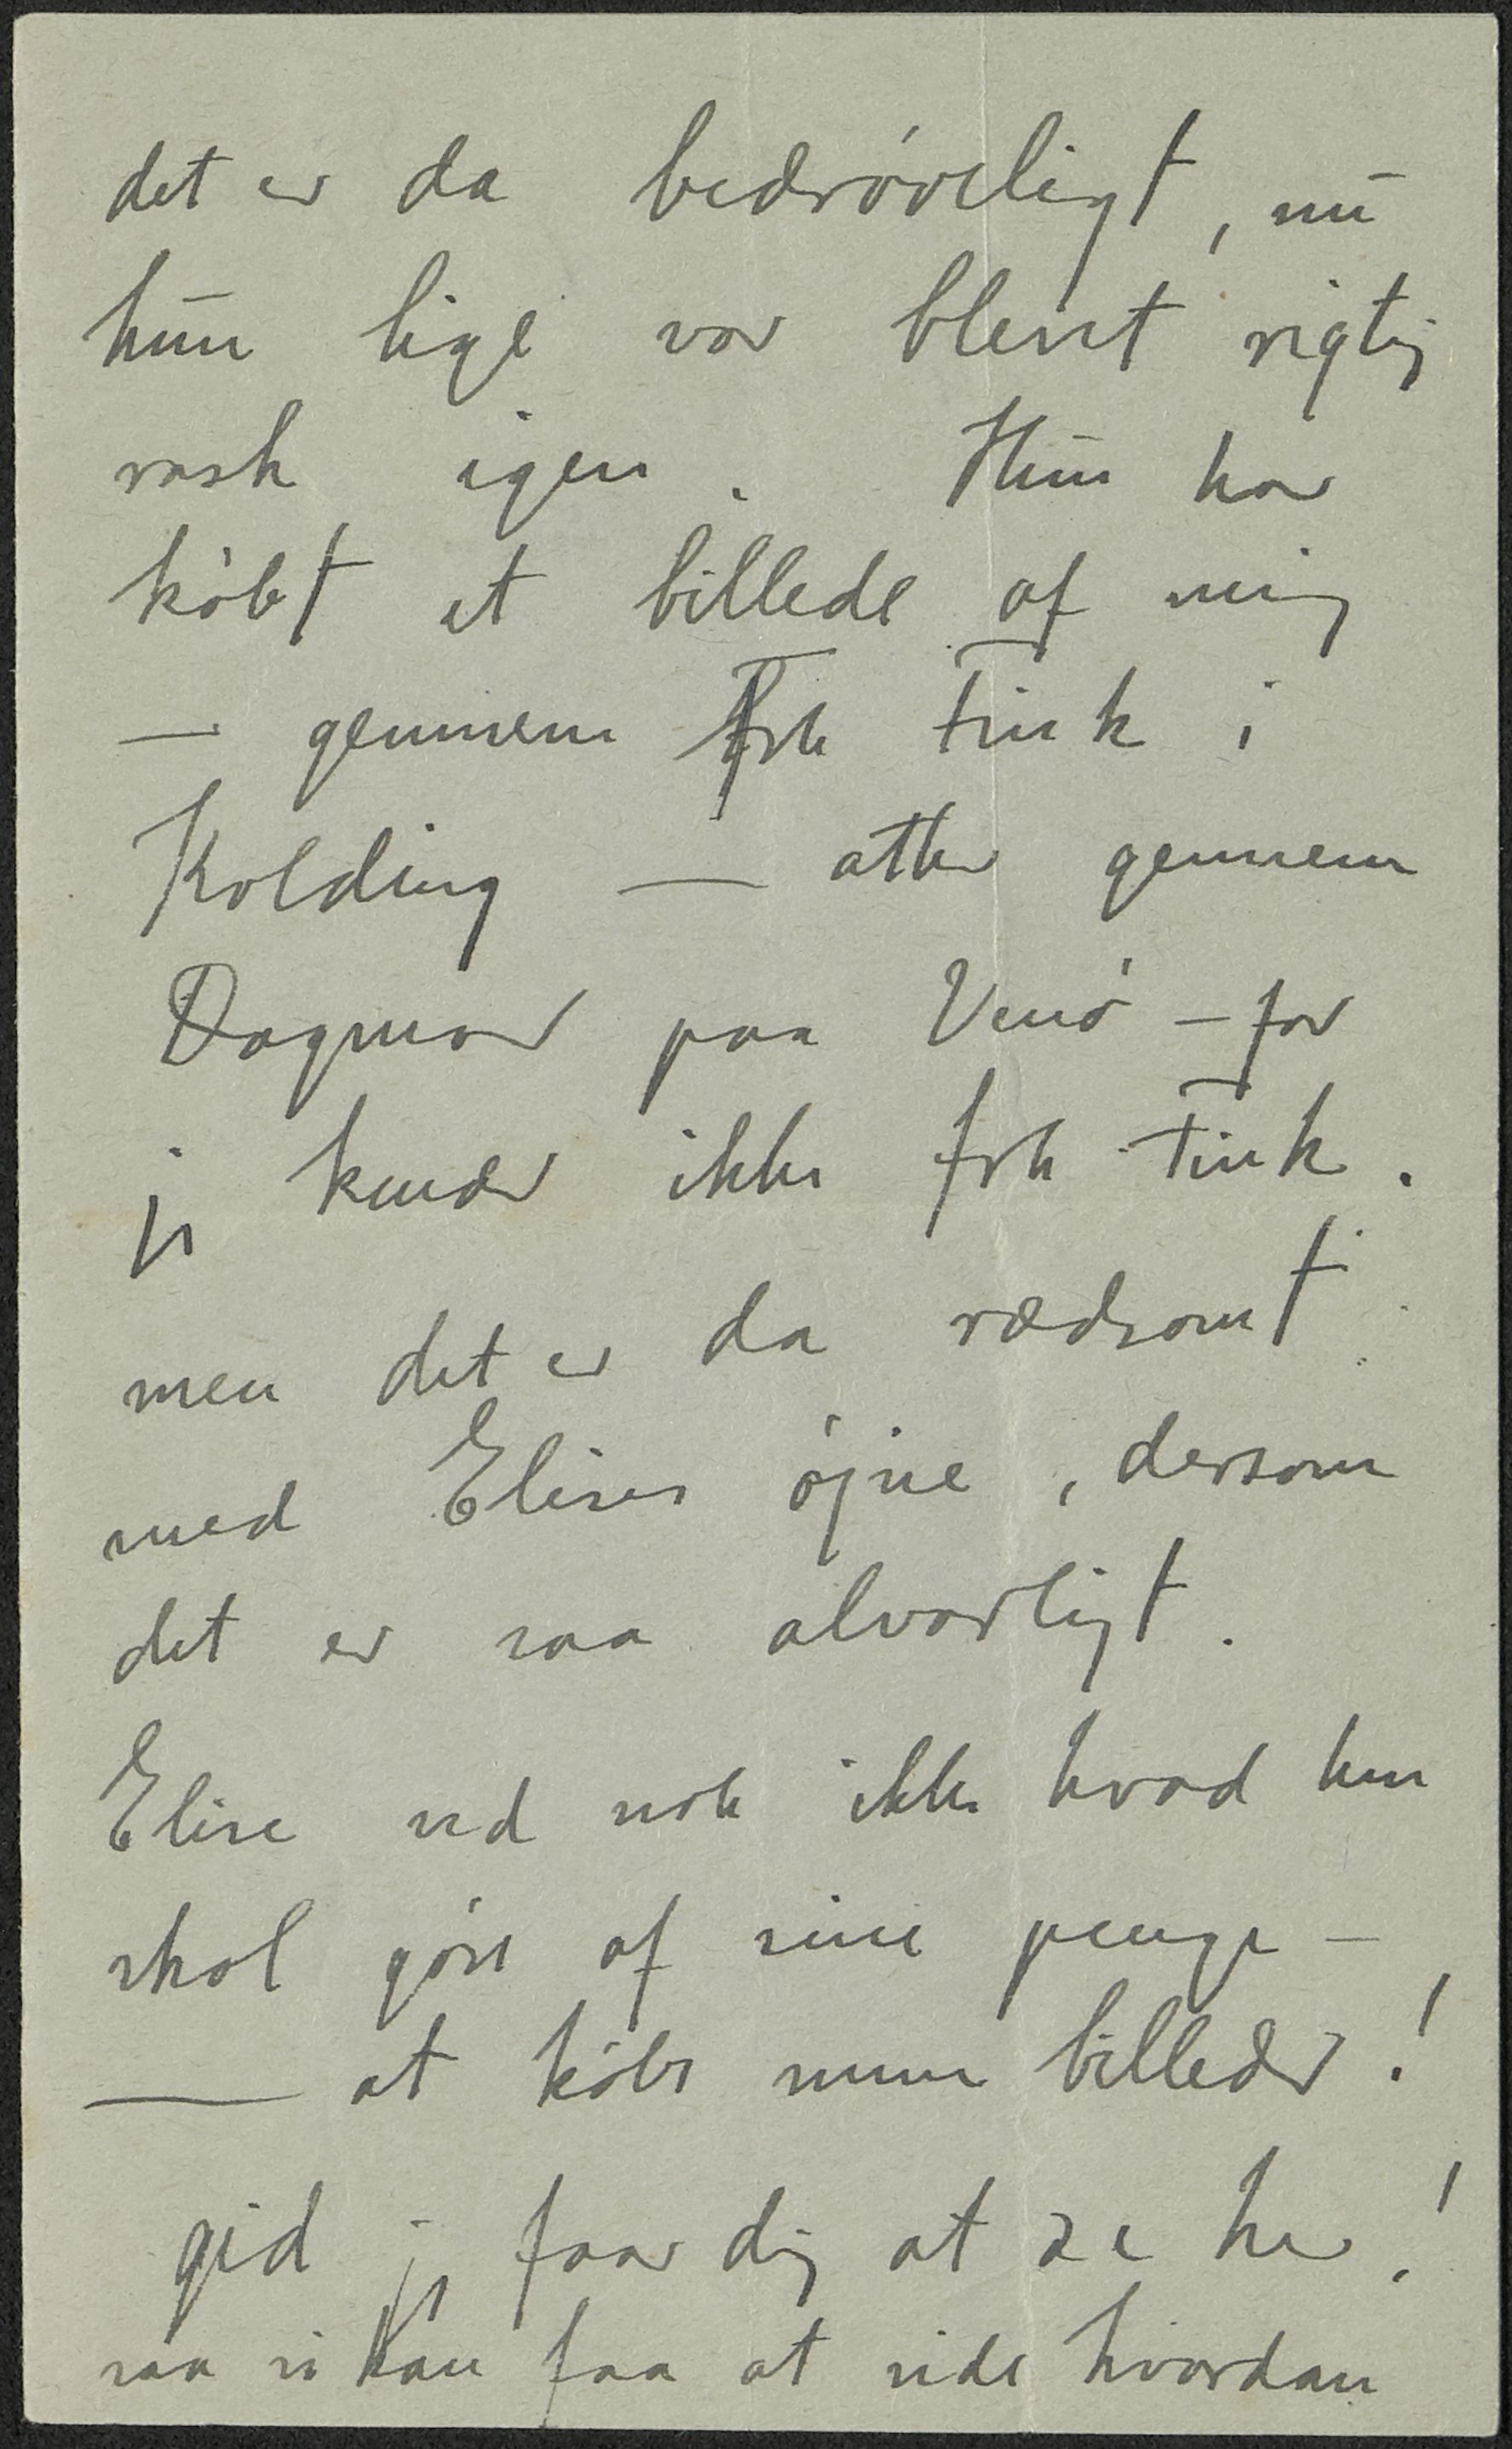 det er da bedrøveligt, nu
hun lige var blevet rigtig
rask igen. Hun har
købt et billede af mig
— gennem Frk Fink i
Kolding — atter gennem
Dagmar paa Venø – for
jeg kender ikke frk Fink.
men det er da rædsomt
med Elises øjne, dersom
det er saa alvorligt.
Elise ved nok ikke hvad hun
skal gøre af sine penge –
— at købe mine billeder!
gid jeg faar dig at se her!
saa vi kan faa at vide hvordan